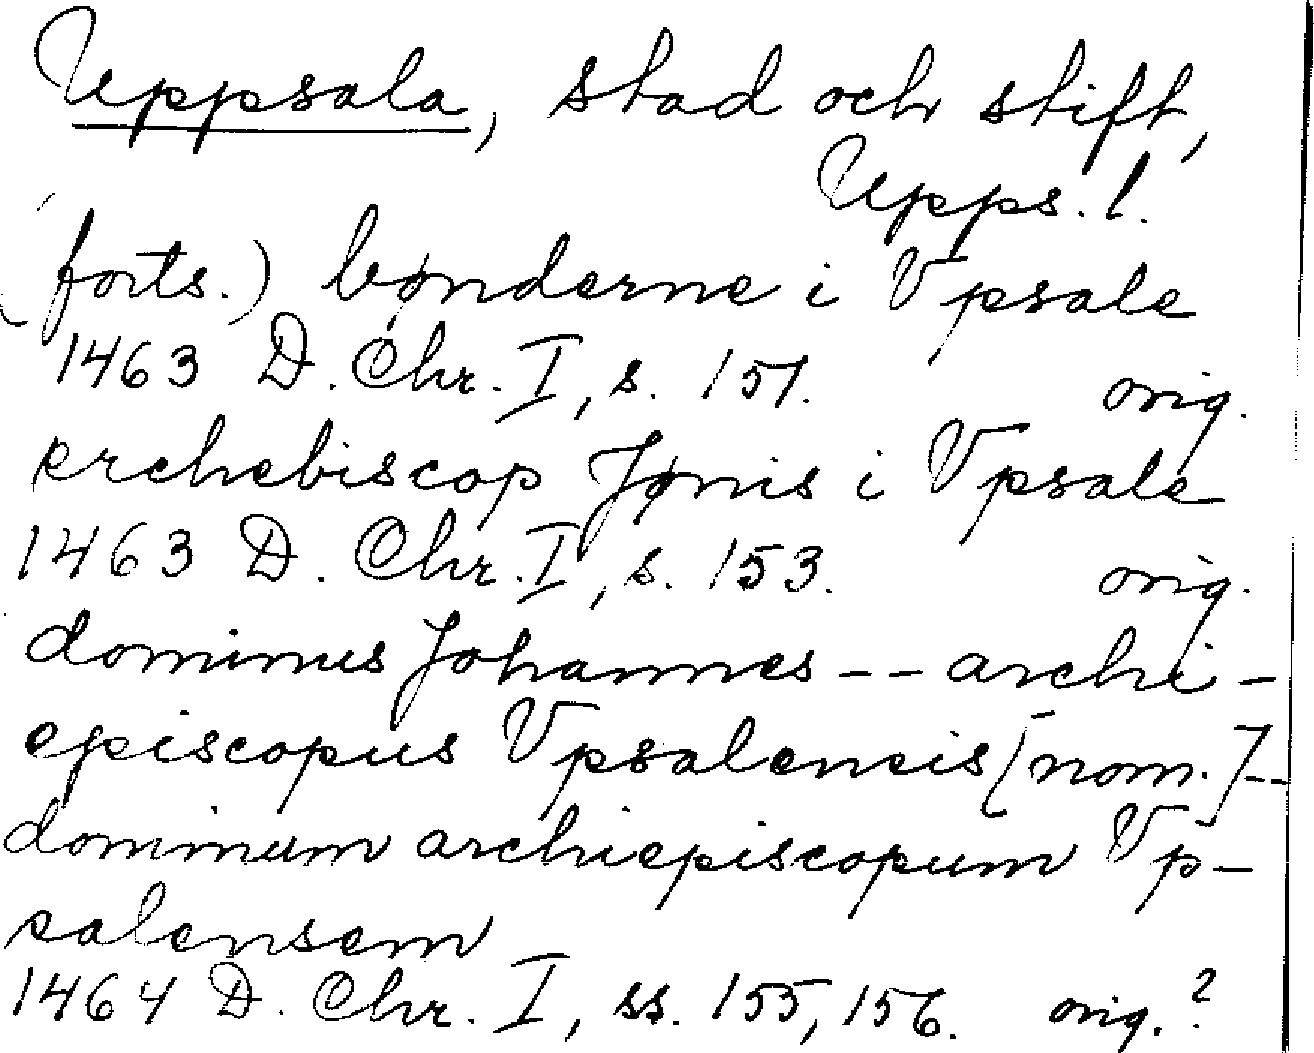 Uppsala, stad och stift,
Upps. l.
(forts.) bønderne i Vpsale
1463 D. Chr. I, s. 151. orig.
erchebiscop Jønis i Vpsale
1463 D. Chr. I, s. 153. orig.
dominus Johannes -- archi-
episcopus Vpsalensis [nom.] --
dominum archiepiscopum Vp-
salensem
1464 D. Chr. I, ss. 155, 156. orig.?